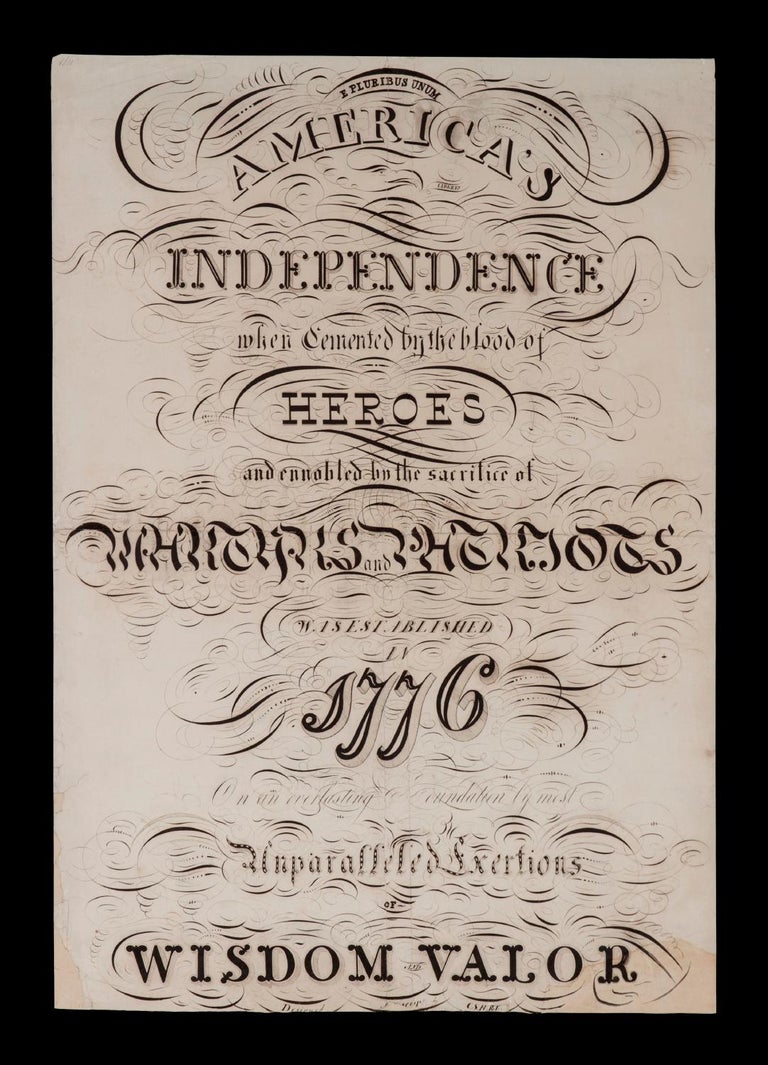 E PLURIBUS UNUM
AMERICA'S
LIBERTY
INDEPENDENCE
when Cemented by the blood of
HEROES
and ennobled by the sacrifice of
MARTYRS and PATRIOTS
WAS ESTABLISHED
IN
1776
On an everlasting Foundation by most
Unparalleled Exertions
OF
WISDOM AND VALOR
Designed